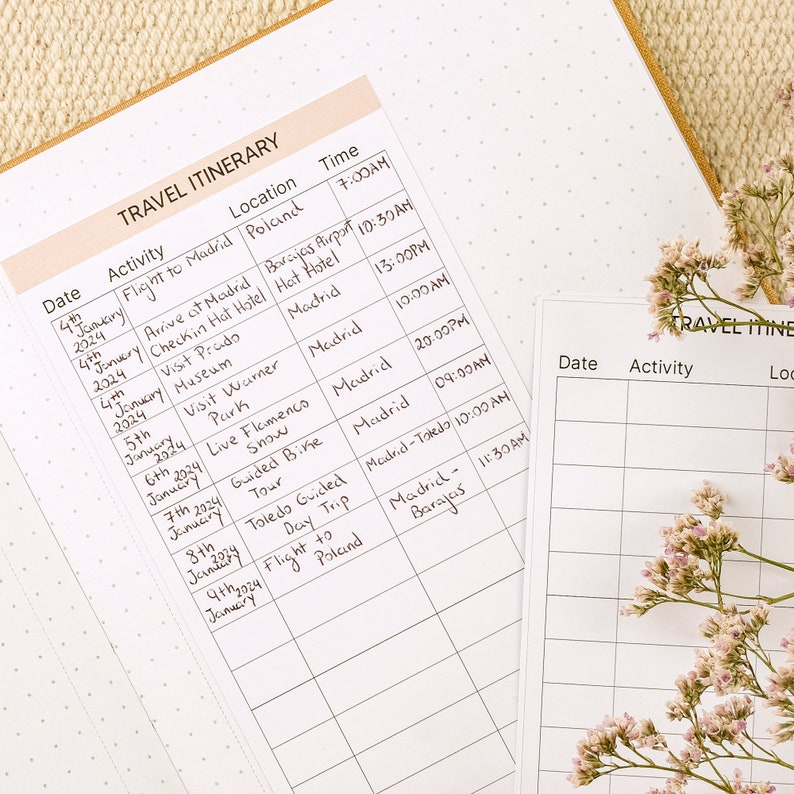 TRAVEL ITINERARY
Date Activity Location Time
4th January 2024 Flight to Madrid Poland 7:00AM
4th January 2024 Arrive at Madrid Checkin Hat Hotel Barajas Airport Hat Hotel 10:30AM
4th January 2024 Visit Prado Museum Madrid 13:00PM
5th January 2024 Visit Warner Park Madrid 10:00AM
6th January 2024 Live Flamenco Show Madrid 20:00PM
7th January 2024 Guided Bike Tour Madrid 09:00AM
8th January 2024 Toledo Guided Day Trip Madrid-Toledo 10:00AM
9th January 2024 Flight to Poland Madrid-Barajas 11:30AM
TRAVEL ITINE
Date Activity Loc